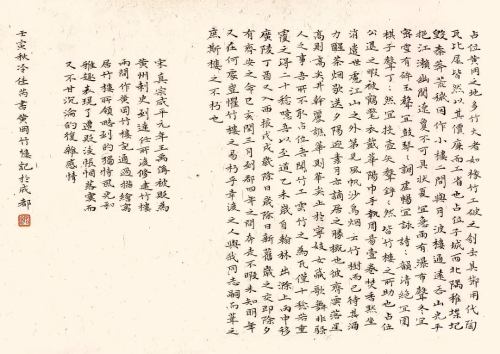 占位黄岡之地多竹大者如椽竹工破之刳去其節用代陶
瓦比屋皆然以其價廉而工省也占位子城西北隅雉堞圮
毀蓁莽荒穢因作小樓二間與月波樓通遠吞山光平
挹江瀨幽闃遼夐不可具狀夏宜急雨有瀑布聲冬宜
密雪有碎玉聲宜鼓琴琴調虛暢宜詠詩詩韻清絕宜圍
棋子聲丁丁然宜投壺矢聲錚錚然皆竹樓之所助也占位
公退之暇被鶴氅衣戴華陽巾手執周易壹卷焚香默坐
消遣世慮江山之外第見風帆沙鳥煙雲竹樹而已待其酒
力醒茶烟歇送夕陽迎素月亦謫居之勝概也彼齊雲落星
高則高矣井幹麗譙華則華矣止於貯妓女藏歌舞非騷
人之事吾所不取占位吾聞竹工云竹之為瓦僅十稔若重
覆之得二十稔噫吾以至道乙未歲自翰林出滁上丙申移
廣陵丁酉又入西掖戊戌歲除日歲除日新舊歲之交即除夕
有齊安之命己亥閏三月到郡四年之間奔走不暇未知明年
又在何處豈懼竹樓之易朽乎幸後之人與我同志嗣而葺之
庶斯樓之不朽也
宋真宗咸平元年王禹偁被貶為
黄州刺史到達任所後修建竹樓
兩間作黄岡竹樓記通過描繪寫
居竹樓所領略到的獨特風光和
雅趣表現了遭貶後悵惘落寞而
又不甘沉淪的複雜感情
壬寅秋冷佳尚書黄岡竹樓記於成都